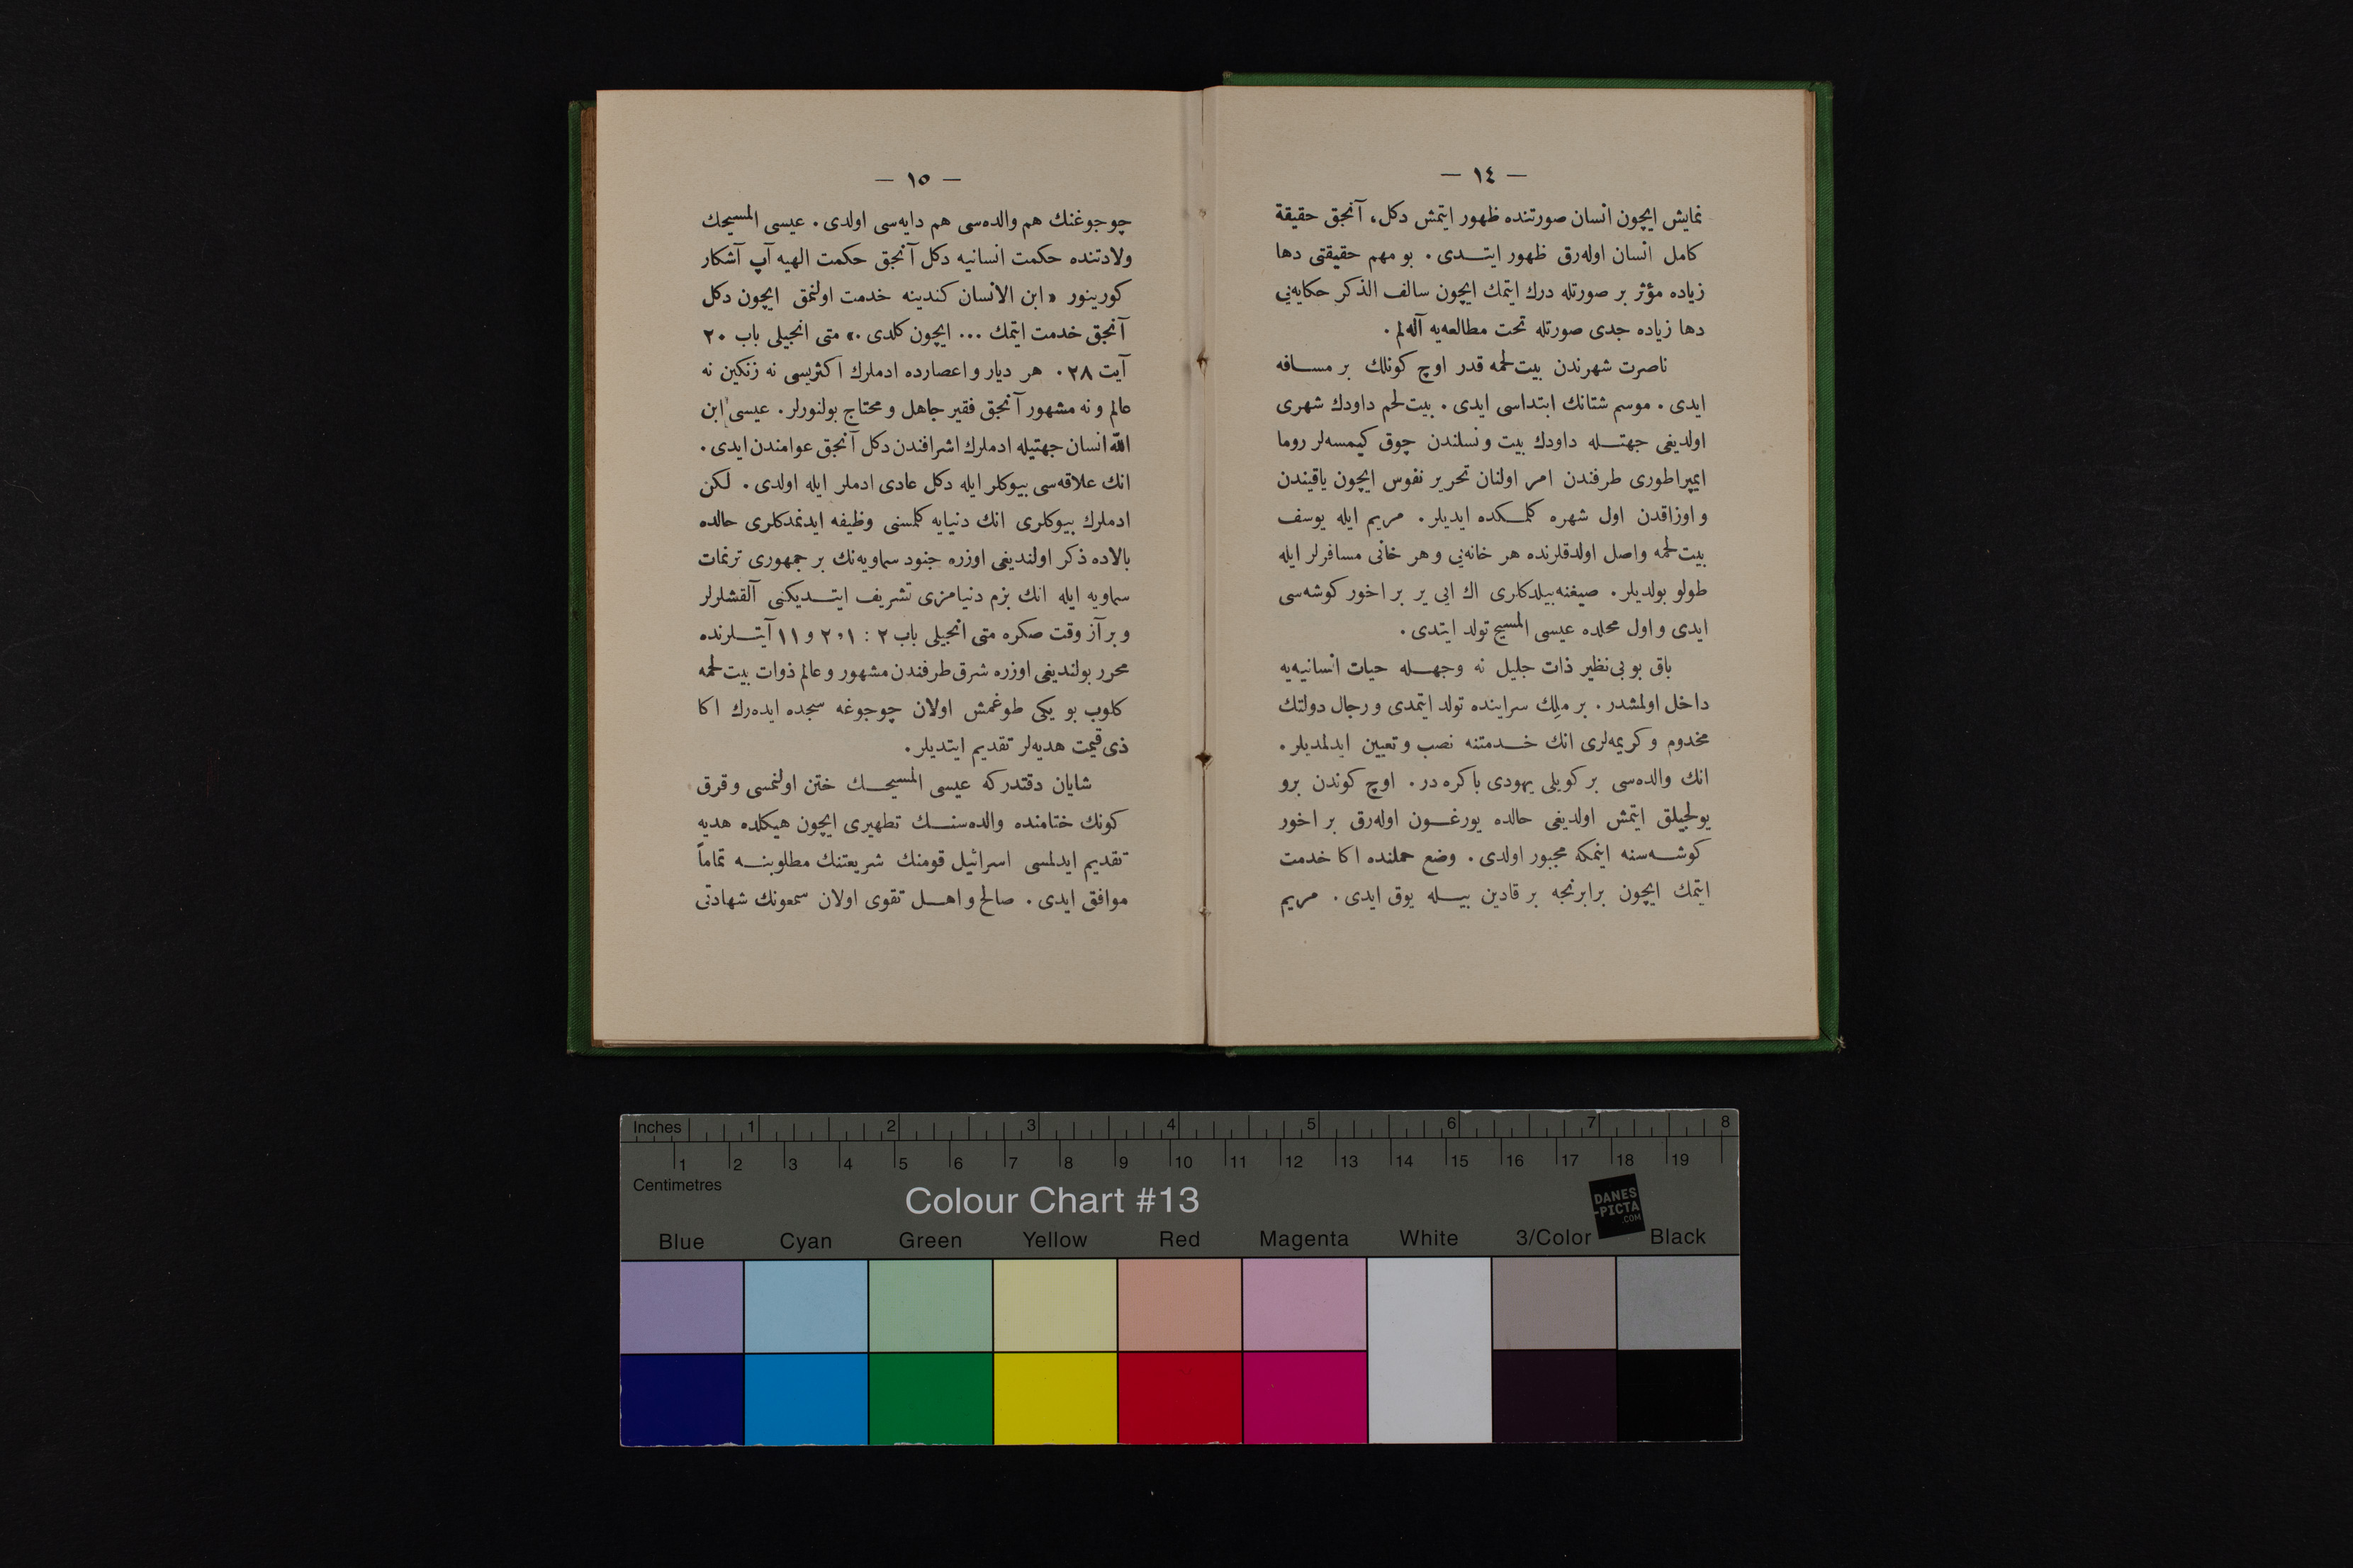 — ١٤ —
نمایش ایچون انسان صورتنده ظهور ایتمش دكل، آنجق حقیقة
كامل انسان اوله‌رق ظهور ایتــدى . بو مهم حقیقتى دها
زیاده مؤثر بر صورتله درك ایتمك ایچون سالف الذكر حكایه‌یى
دها زیاده جدى صورتله تحت مطالعه‌یه آله‌لم .
ناصرت شهرندن بیت‌لحمه قدر اوچ كونلك بر مسافه
ایدى . موسم شتانك ابتداسى ایدى . بیت‌لحم داودك شهرى
اولدیغى جهتــله داودك بیت و نسلندن چوق كیمسه‌لر روما
ایمپراطورى طرفندن امر اولنان تحریر نفوس ایچون یاقیندن
و اوزاقدن اول شهره كلمكده ایدیلر . مریم ایله یوسف
بیت‌لحمه واصل اولدقلرنده هر خانه‌یى و هر خانى مسافرلر ایله
طولو بولدیلر . صیغنه‌بیلدكلرى اك ایى یر بر اخور كوشه‌سى
ایدى و اول محلده عیسى المسیح تولد ایتدى .
باق بو بى‌نظیر ذات جلیل نه وجهــله حیات انسانیه‌یه
داخل اولمشدر . بر ملِك سراینده تولد ایتمدى و رجال دولتك
مخدوم و كریمه‌لرى انك خــدمتنه نصب و تعیین ایدلمدیلر .
انك والده‌سى بر كویلى یهودى باكره در . اوچ كوندن برو
یولجیلق ایتمش اولدیغى حالده یورغــون اوله‌رق بر اخور
كوشــه‌سنه اینمكه مجبور اولدى . وضع حملنده اكا خدمت
ایتمك ایچون برابرنجه بر قادین بیــله یوق ایدى . مریم
— ١٥ —
چوجوغنك هم والده‌سى هم دایه‌سى اولدى . عیسى المسیحك
ولادتنده حكمت انسانیه دكل آنجق حكمت الهیه آپ آشكار
كورینور « ابن الانسان كندینه خدمت اولنمق ایچون دكل
آنجق خدمت ایتمك ... ایچون كلدى .» متى انجیلى باب ٢٠
آیت ٢٨ . هر دیار و اعصارده ادملرك اكثریسى نه زنكین نه
عالم و نه مشهور آنجق فقیر جاهل و محتاج بولنورلر . عیسى ابن
الله انسان جهتیله ادملرك اشرافندن دكل آنجق عوامندن ایدى .
انك علاقه‌سى بیوكلر ایله دكل عادى ادملر ایله اولدى . لكن
ادملرك بیوكلرى انك دنیایه كلمسنى وظیفه ایدنمدكلرى حالده
بالاده ذكر اولندیغى اوزره جنود سماویه‌نك بر جمهورى ترنمات
سماویه ایله انك بزم دنیامزى تشریف ایتــدیكنى آلقشلرلر
و بر آز وقت صكره متى انجیلى باب ٢ : ١، ٢ و ١١ آیتــلرنده
محرر بولندیغى اوزره شرق طرفندن مشهور و عالم ذوات بیت‌لحمه
كلوب بو یكى طوغمش اولان چوجوغه سجده ایده‌رك اكا
ذى قیمت هدیه‌لر تقدیم ایتدیلر .
شایان دقتدركه عیسى المسیحــك ختن اولنمسى و قرق
كونك ختامنده والده‌سنــك تطهیرى ایچون هیكلده هدیه
تقدیم ایدلمسى اسرائیل قومنك شریعتنك مطلوبنــه تماماً
موافق ایدى . صالح و اهــل تقوى اولان سمعونك شهادتى
Inches 1 2 3 4 5 6 7 8
1 2 3 4 5 6 7 8 9 10 11 12 13 14 15 16 17 18 19
Centimetres
Colour Chart #13
DANES
-PICTA
.COM
Blue Cyan Green Yellow Red Magenta White 3/Color Black